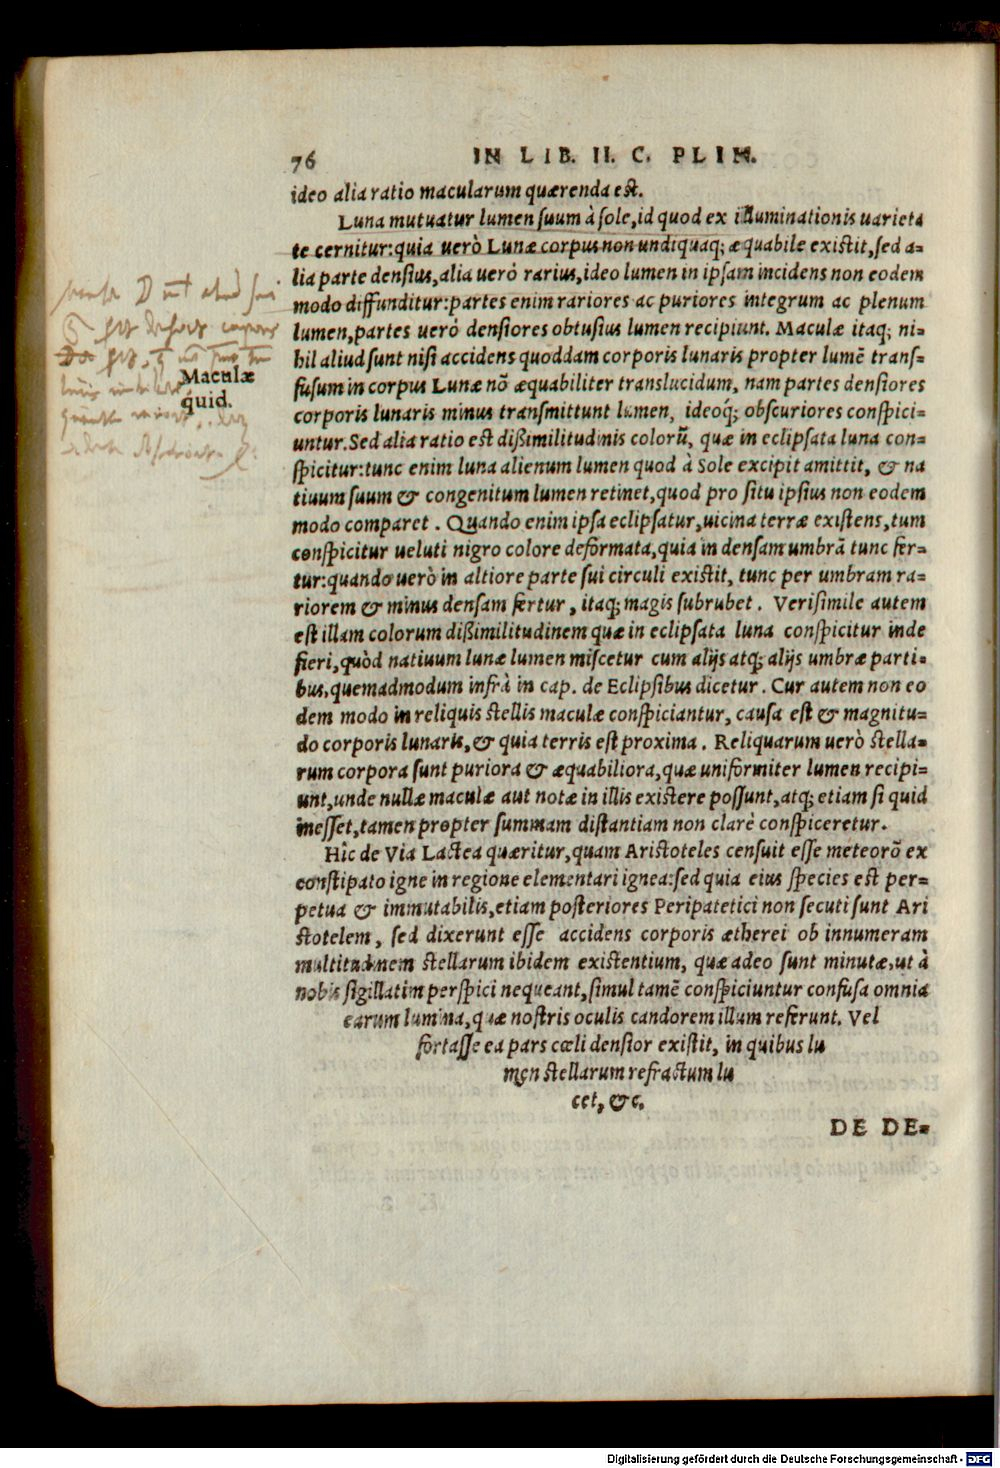 76 IN LIB. II. C. PLIN.
ideo alia ratio macularum quærenda est.
Luna mutuatur lumen suum à sole, id quod ex illuminationis uarieta
te cernitur: quia uerò Lunæ corpus non undiquaq; æquabile existit, sed a=
lia parte densius, alia uerò rarius, ideo lumen in ipsam incidens non eodem
modo diffunditur: partes enim rariores ac puriores integrum ac plenum
lumen, partes uerò densiores obtusius lumen recipiunt. Maculæ itaq; ni=
hil aliud sunt nisi accidens quoddam corporis lunaris propter lumē trans=
Maculæ
fusum in corpus Lunæ nō æquabiliter translucidum, nam partes densiores
quid.
corporis lunaris minus transmittunt lumen, ideoq́; obscuriores conspici=
untur. Sed alia ratio est dißimilitudinis colorū, quæ in eclipsata luna con=
spicitur: tunc enim luna alienum lumen quod à Sole excipit amittit, & na
tiuum suum & congenitum lumen retinet, quod pro situ ipsius non eodem
modo comparet. Quando enim ipsa eclipsatur, uicina terræ existens, tum
conspicitur ueluti nigro colore deformata, quia in densam umbrā tunc fer=
tur: quando uerò in altiore parte sui circuli existit, tunc per umbram ra=
riorem & minus densam fertur, itaq; magis subrubet. Verisimile autem
est illam colorum dißimilitudinem quæ in eclipsata luna conspicitur inde
fieri, quòd natiuum lunæ lumen miscetur cum alijs atq; alijs umbræ parti=
bus, quemadmodum infrà in cap. de Eclipsibus dicetur. Cur autem non eo
dem modo in reliquis stellis maculæ conspiciantur, causa est & magnitu=
do corporis lunaris, & quia terris est proxima. Reliquarum uerò stella=
rum corpora sunt puriora & æquabiliora, quæ uniformiter lumen recipi=
unt, unde nullæ maculæ aut notæ in illis existere possunt, atq; etiam si quid
inesset, tamen propter summam distantiam non clarè conspiceretur.
Hîc de Via Lactea quæritur, quam Aristoteles censuit esse meteorō ex
constipato igne in regione elementari ignea: sed quia eius species est per=
petua & immutabilis, etiam posteriores Peripatetici non secuti sunt Ari
stotelem, sed dixerunt esse accidens corporis ætherei ob innumeram
multitudinem stellarum ibidem existentium, quæ adeo sunt minutæ, ut à
nobis sigillatim perspici nequeant, simul tamē conspiciuntur confusa omnia
earum lumina, quæ nostris oculis candorem illum referunt. Vel
fortasse ea pars cœli densior existit, in quibus lu
men stellarum refractum lu
cet, &c.
DE DE=
Digitalisierung gefördert durch die Deutsche Forschungsgemeinschaft - DFG